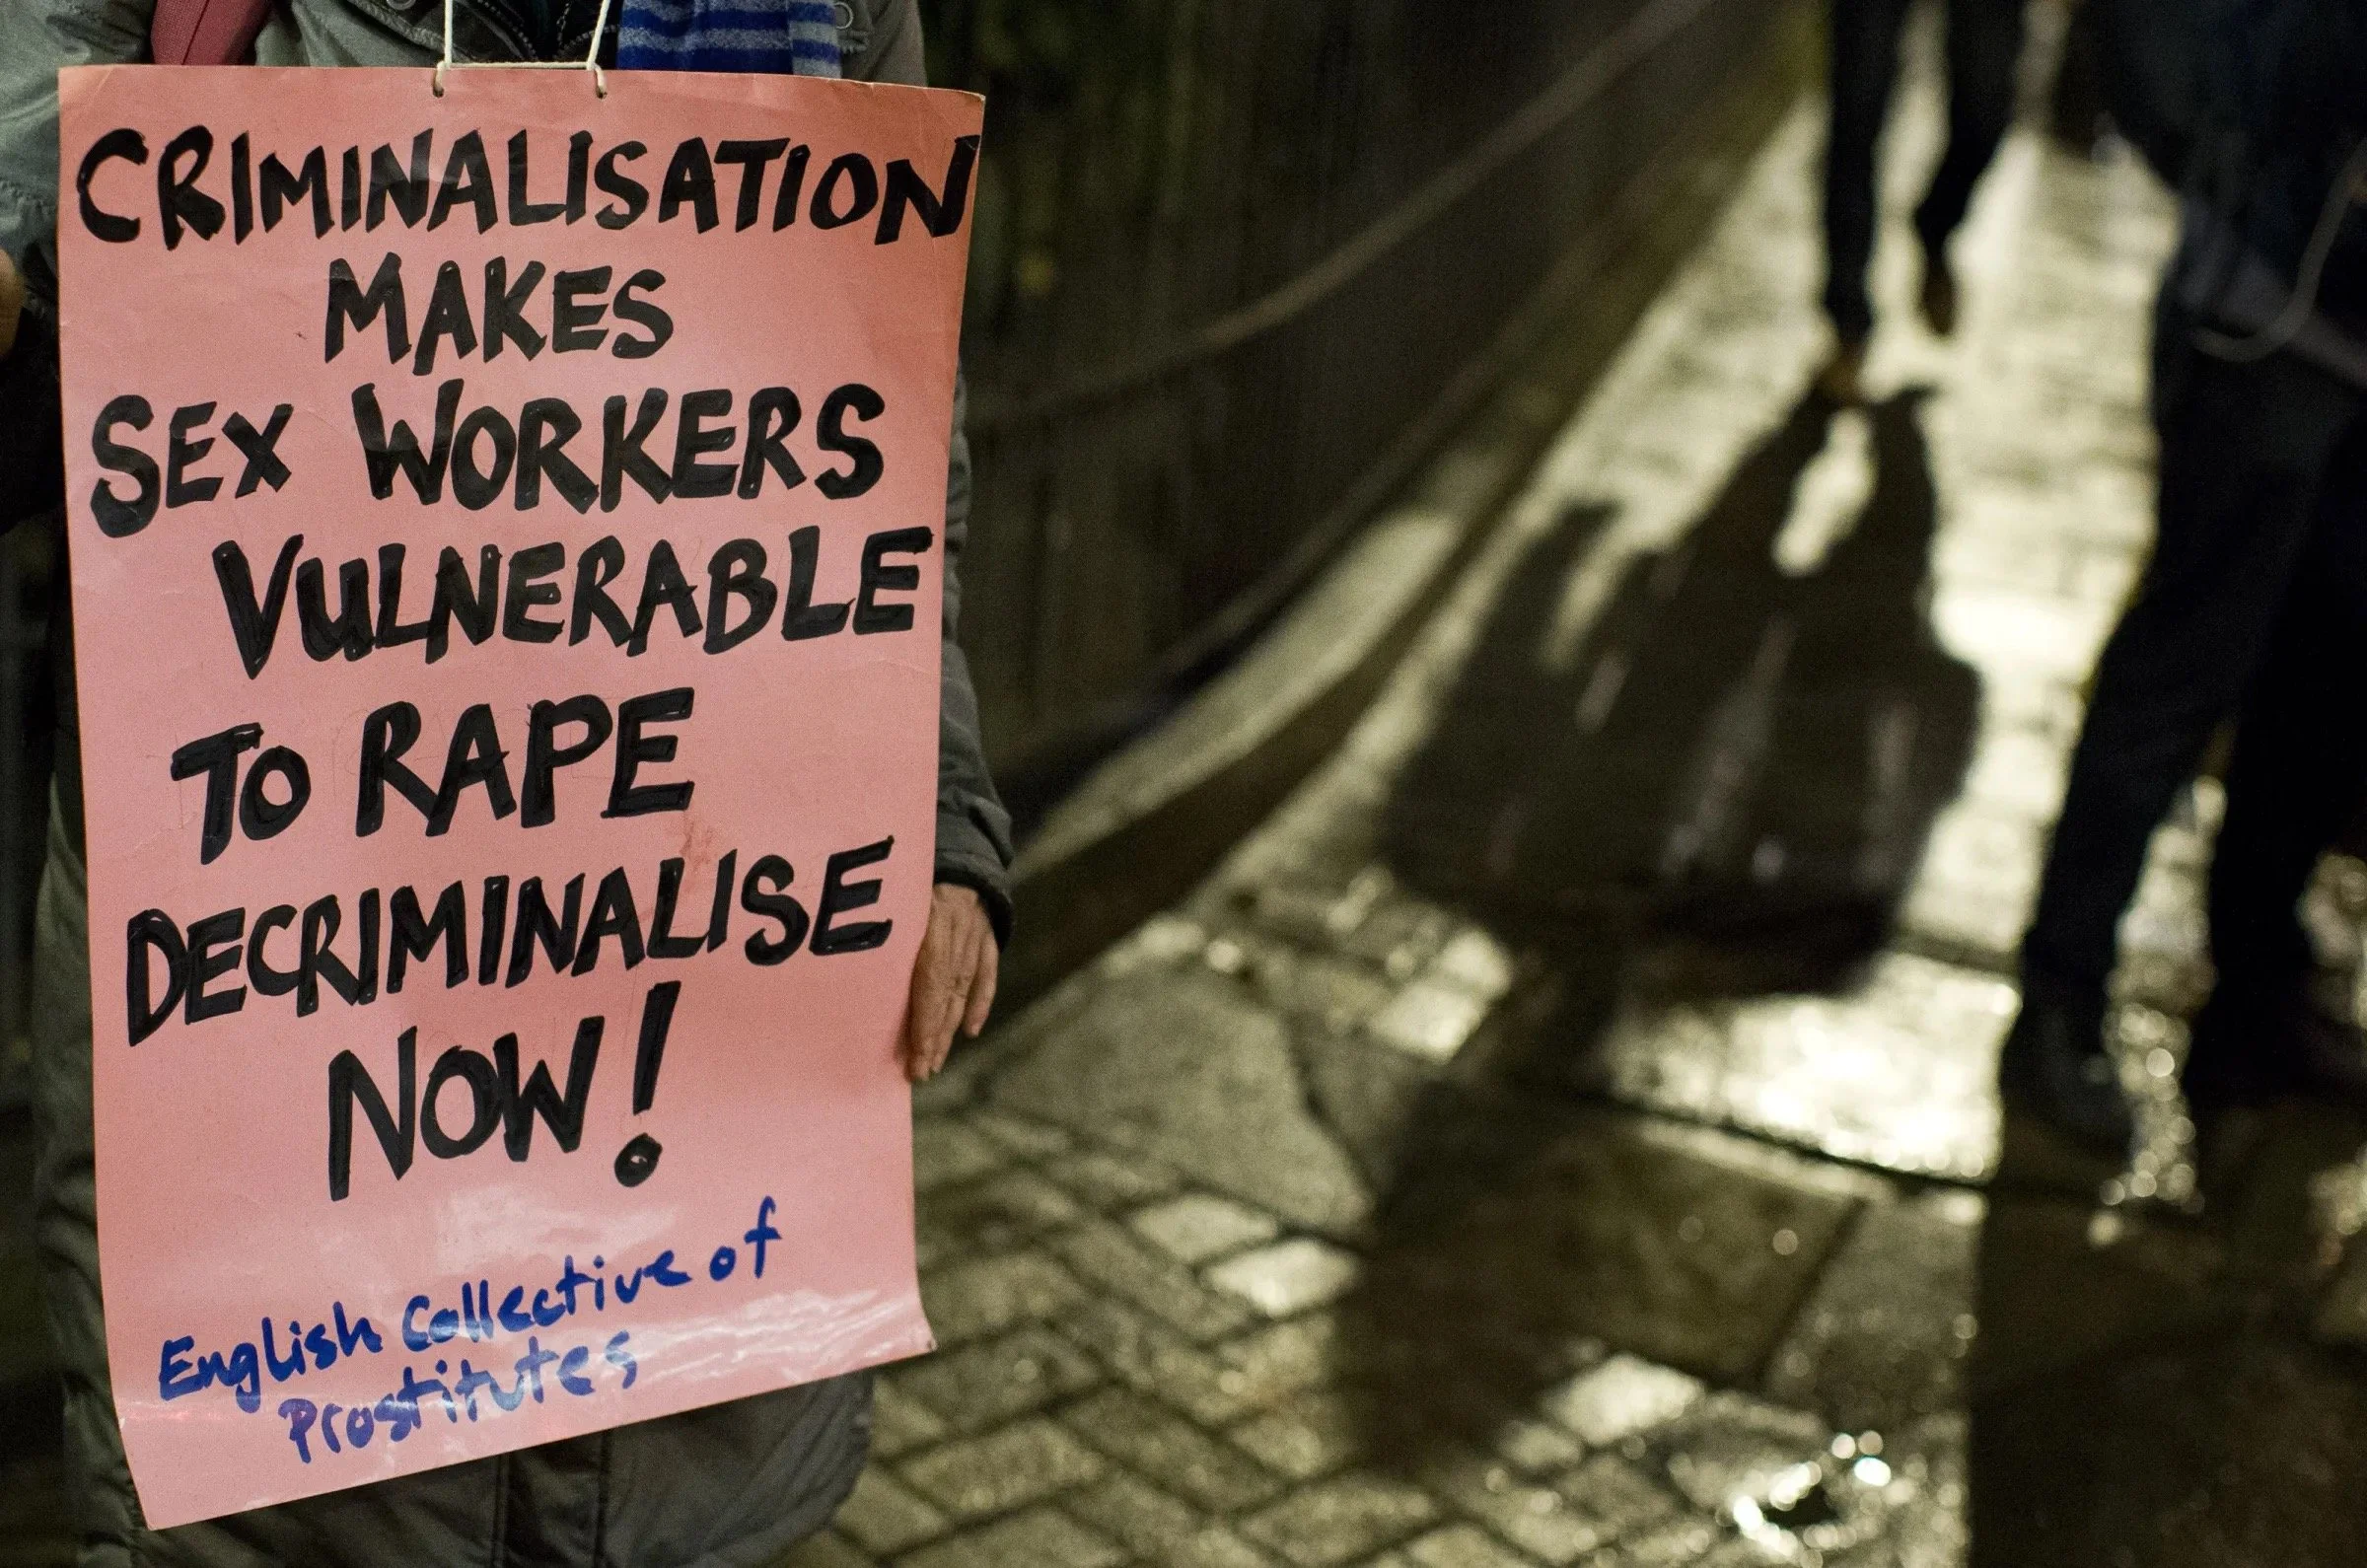 CRIMINALISATION
MAKES
SEX WORKERS
VULNERABLE
TO RAPE
DECRIMINALISE
NOW!
English Collective of
Prostitutes